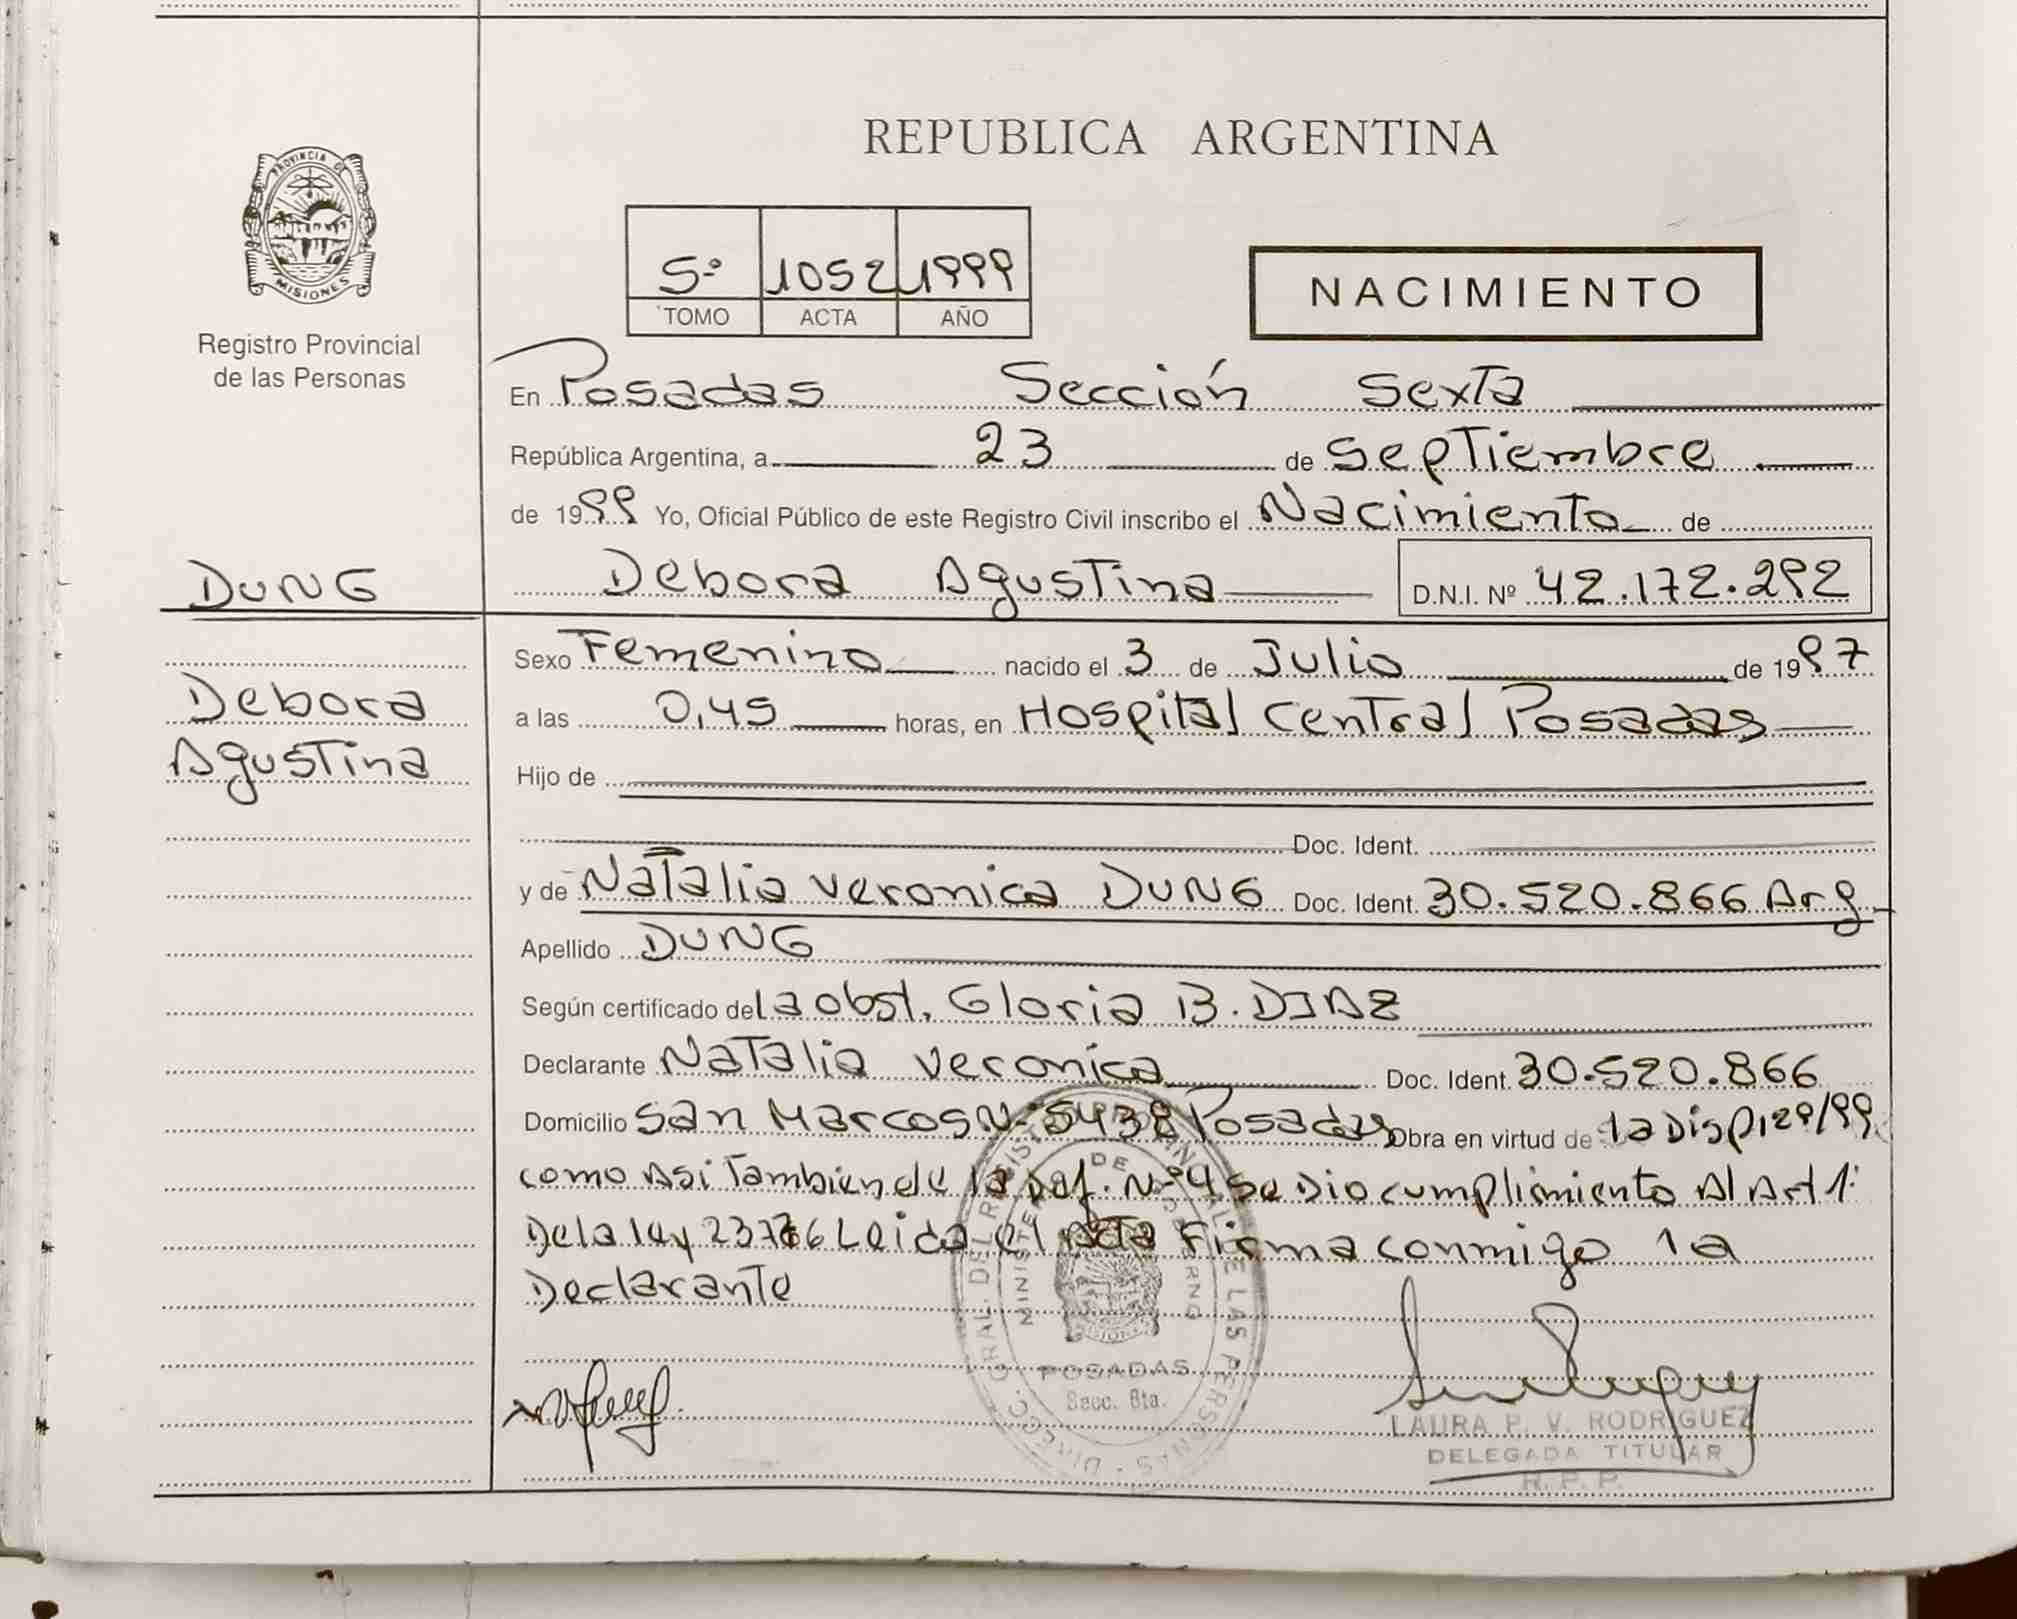 REPUBLICA ARGENTINA
PROVINCIA DE
MISIONES
Registro Provincial
de las Personas
5º 1052 1999
TOMO ACTA AÑO
NACIMIENTO
En Posadas Sección Sexta
República Argentina, a 23 de Septiembre
de 1999 Yo, Oficial Público de este Registro Civil inscribo el Nacimiento de
DUNG
Debora Agustina D.N.I. Nº 42.172.292
Sexo Femenino nacido el 3 de Julio de 1997
Debora
a las 0,45 horas, en Hospital Central Posadas
Agustina
Hijo de
Doc. Ident.
y de Natalia Veronica DUNG Doc. Ident. 30.520.866 Arg.
Apellido DUNG
Según certificado de la obst. Gloria B. DIAZ
Declarante Natalia Veronica Doc. Ident. 30.520.866
Domicilio San Marcos Nº 5438 Posadas Obra en virtud de la Disp 129/99
como Asi Tambien de la Nº 4 se Dio cumplimiento Al Art 1º
De la ley Leida el Acta Firma conmigo la
Declarante
DIRECC. GRAL. DEL REGISTRO PROVINCIAL DE LAS PERSONAS
MINISTERIO DE GOBIERNO
MISIONES
POSADAS
Secc. 6ta.
LAURA P. V. RODRIGUEZ
DELEGADA TITULAR
R. P. P.